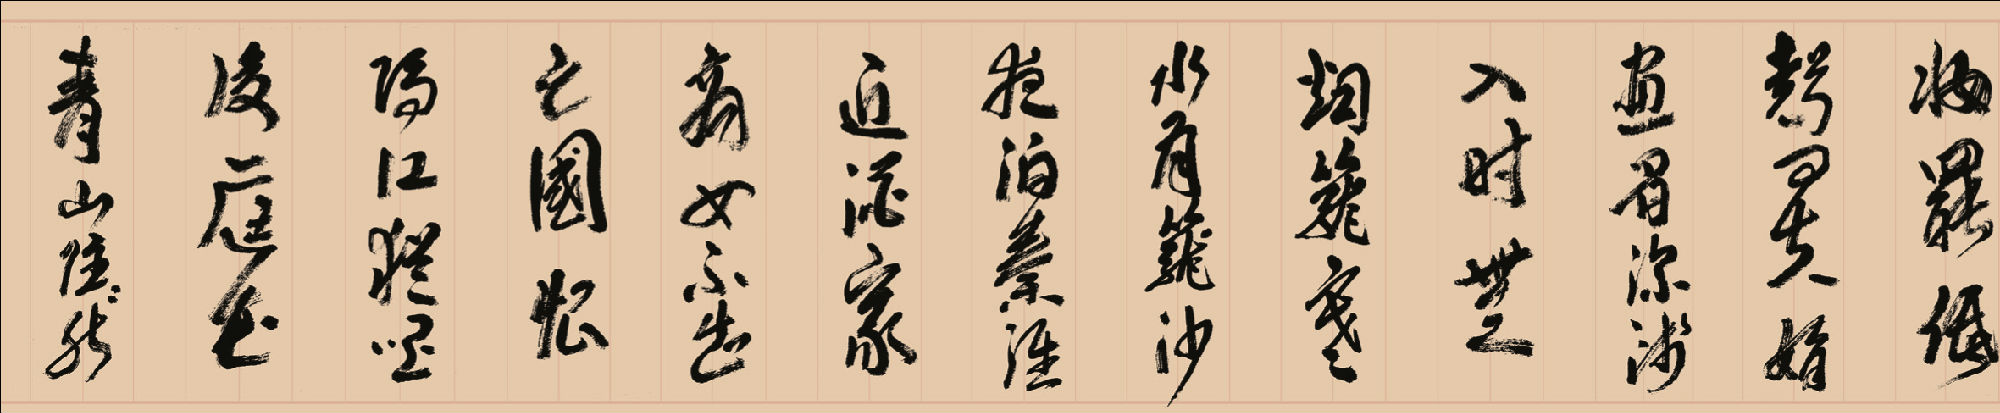 妝罷低
聲問夫婿
畫眉深淺
入时無
烟籠寒
水月籠沙
夜泊秦淮
近酒家
商女不知
亡國恨
隔江猶唱
後庭花
青山隱〻